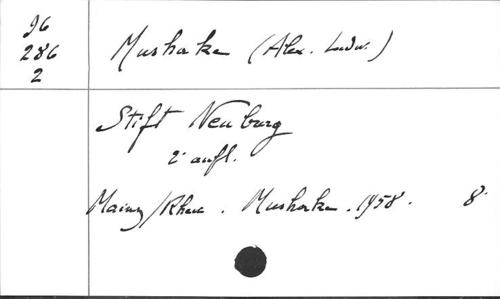 96
286
2
Mushake (Alex. Ludw.)
Stift Neuburg
2. aufl.
Mainz/Rhein. Mushake. 1958. 8°